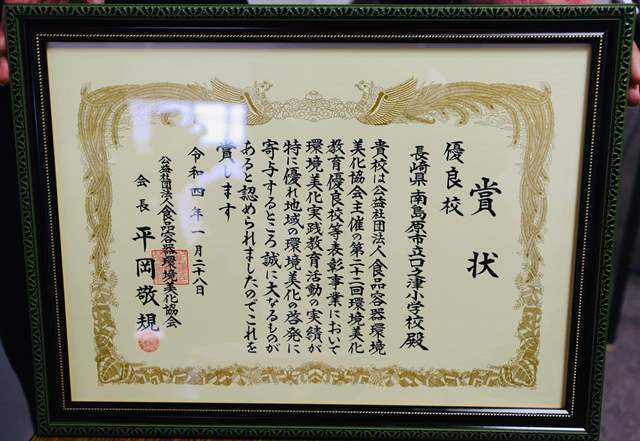 賞状
優良校
長崎県南島原市立口之津小学校殿
貴校は公益社団法人食品容器環境
美化協会主催の第二十二回環境美化
教育優良校等表彰事業において
環境美化実践教育活動の実績が
特に優れ地域の環境美化の啓発に
寄与するところ誠に大なるものが
あると認められましたのでこれを
賞します
令和四年一月二十八日
公益社団法人食品容器環境美化協会
会長 平岡敬規